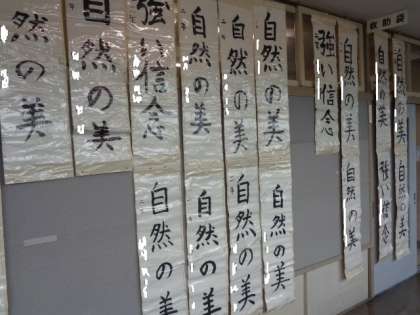 然の美
自然の美
強い信念
自然の美
自然の美
自然の美
強い信念
自然の美
自然の美
自然の美
救助袋
自然の美
自然の美
自然の美
自然の美
自然の美
強い信念
自然の美